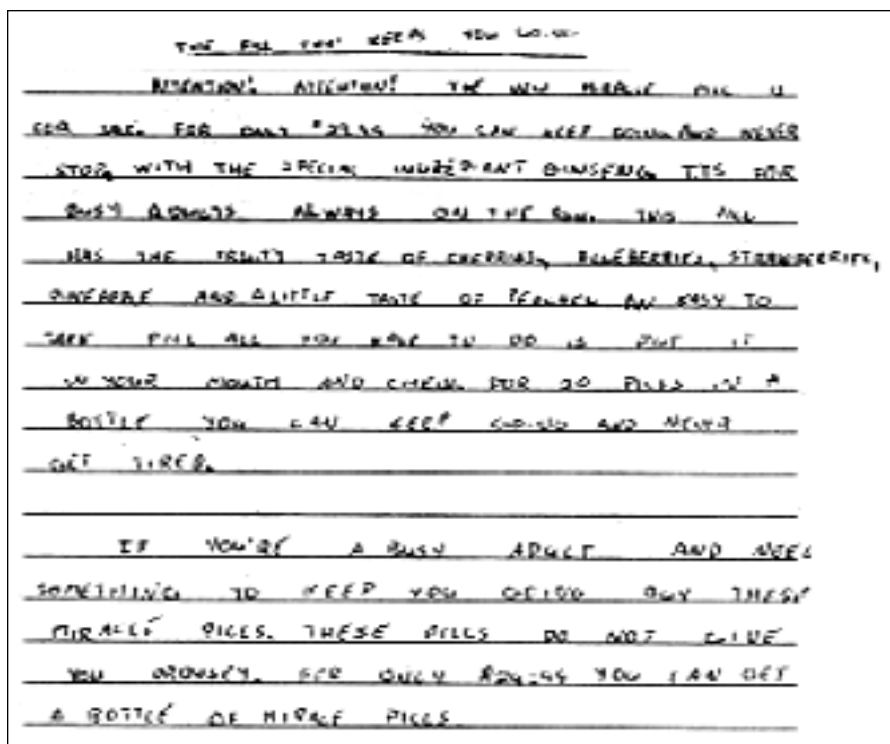 THE PILL THAT KEEPS YOU GOING
ATTENTION! ATTENTION! THE NEW MIRACLE PILL IS
FOR SALE. FOR ONLY YOU CAN KEEP GOING AND NEVER
STOP, WITH THE SPECIAL GINSENG. ITS FOR
BUSY ADULTS ALWAYS ON THE RUN. THIS PILL
HAS THE FRUITY TASTE OF BLUEBERRIES, STRAWBERRIES,
AND A LITTLE TASTE OF AN EASY TO
TAKE PILL ALL YOU HAVE TO DO IS PUT IT
IN YOUR MOUTH AND CHEW. FOR 20 PILLS IN A
BOTTLE YOU CAN KEEP GOING AND NEVER
GET TIRED.
IF YOU'RE A BUSY ADULT AND NEED
SOMETHING TO KEEP YOU GOING BUY THESE
PILLS. THESE PILLS DO NOT
YOU FOR ONLY YOU CAN GET
A BOTTLE OF PILLS